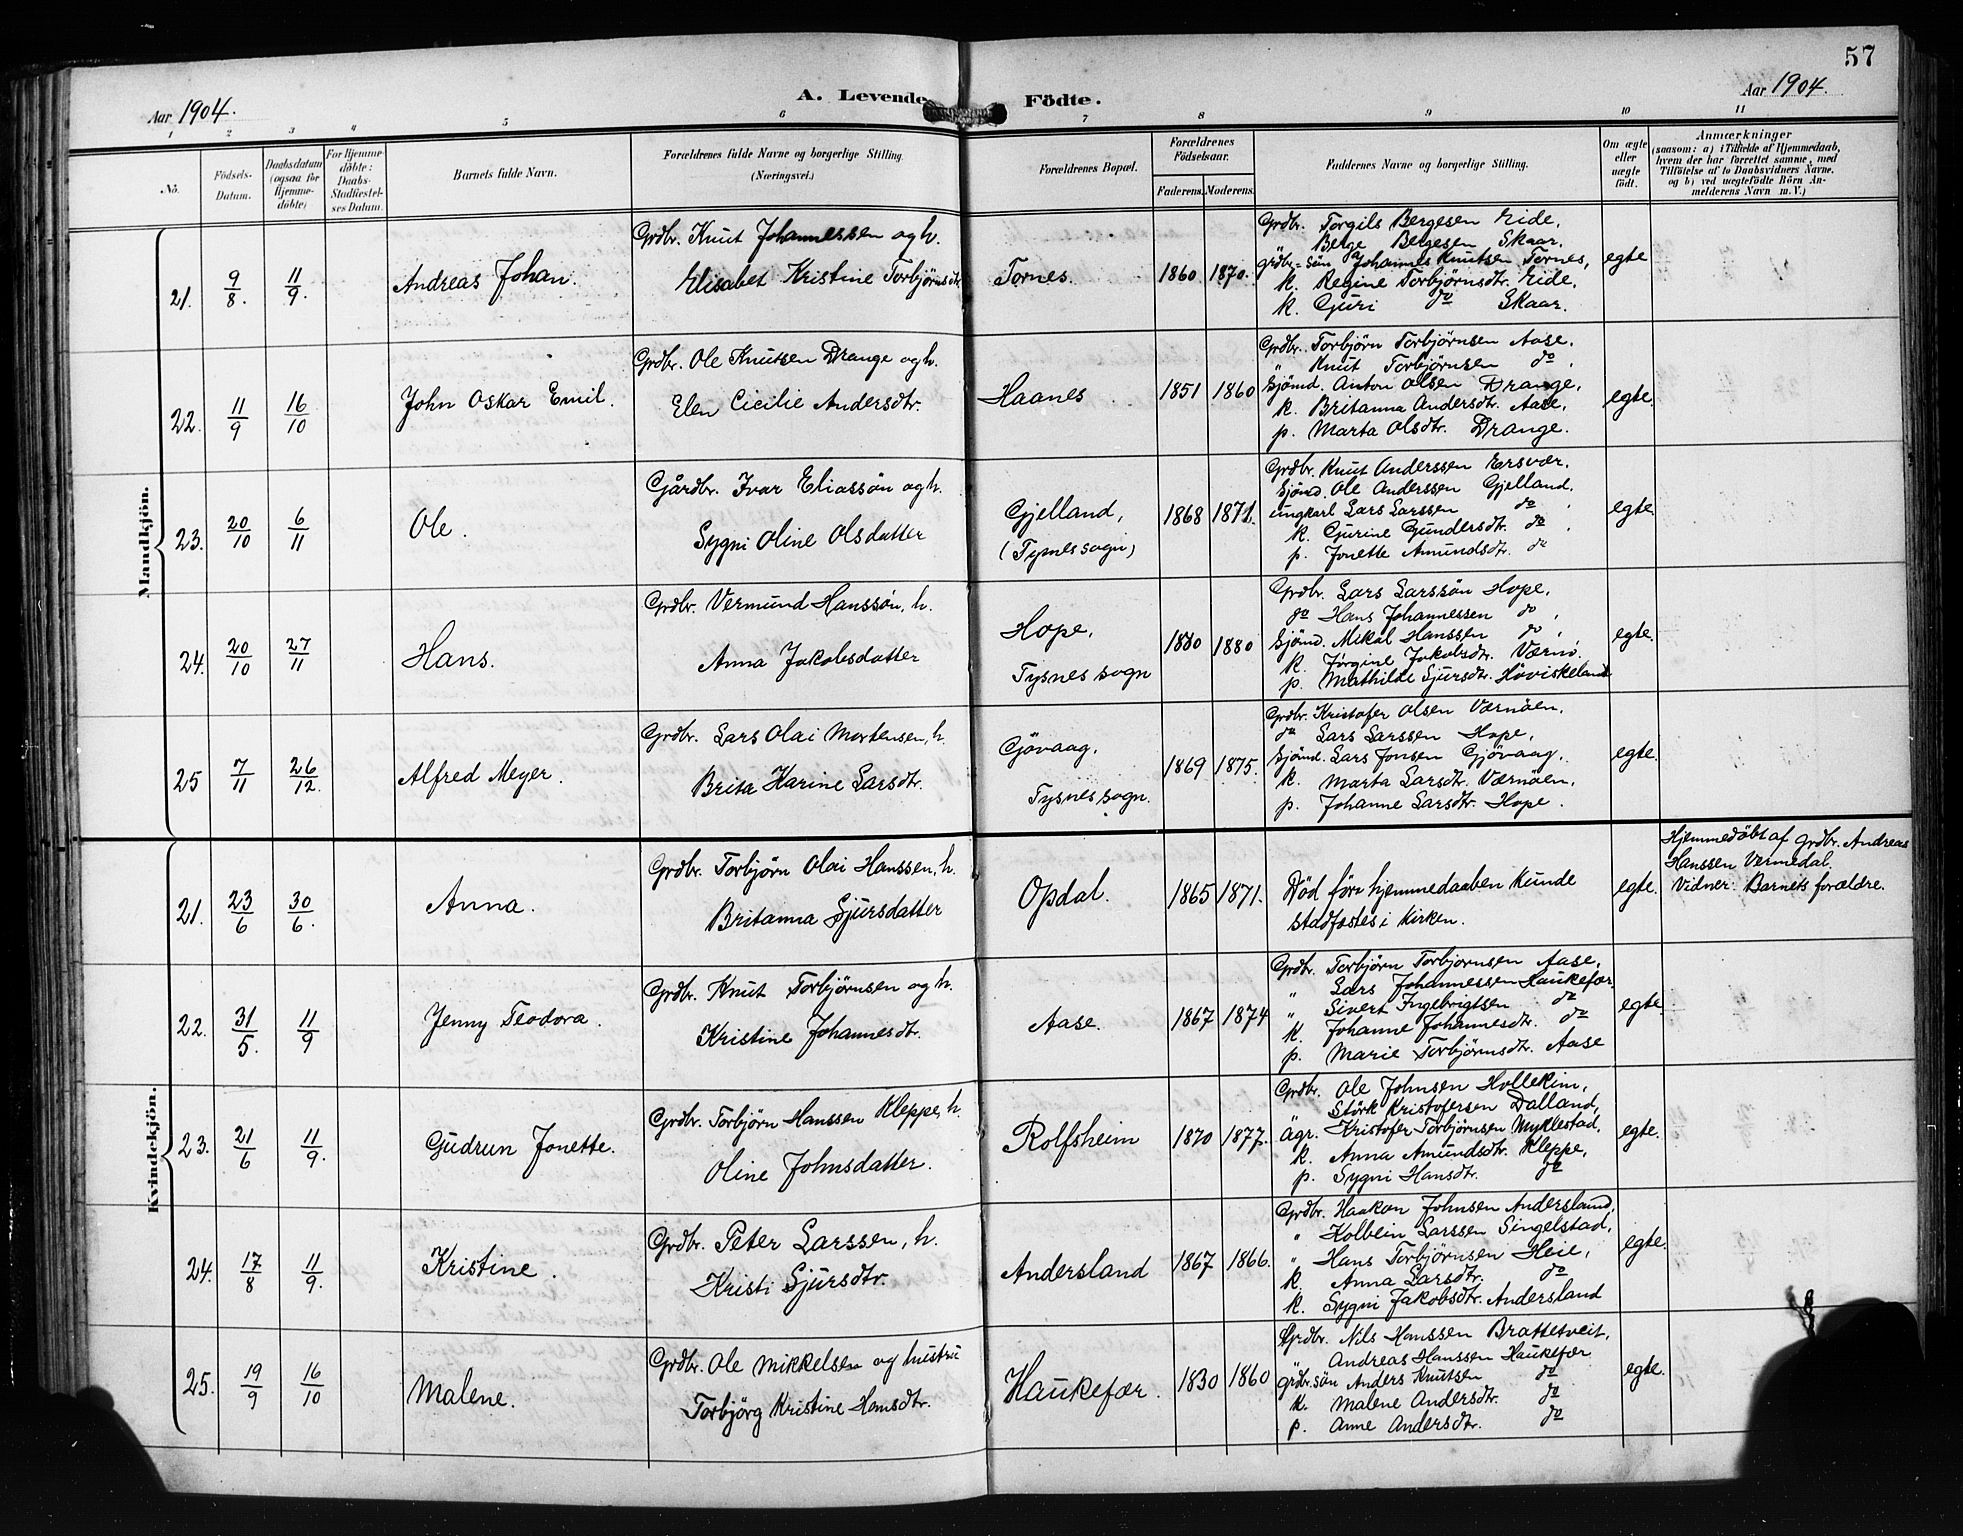 57
Aar 1904.
A. Levende Födte.
Aar 1904.
1 2 3 4 5 6 7 8 9 10 11
No.
Födsels-Datum.
Daabsdatum (ogsaa for Hjemme-döbte)
For Hjemme-döbte: Daabs-Stadfæstel-ses Datum.
Barnets fulde Navn.
Forældrenes fulde Navne og borgerlige Stilling.
(Næringsvei.)
Forældrenes Bopæl.
Forældrenes Födselsaar.
Faderens. Moderens.
Faddernes Navne og borgerlige Stilling.
Om ægte eller uægte födt.
Anmærkninger
(saasom: a) i Tilfælde af Hjemmedaab, hvem der har forrettet samme, med Tilföielse af to Daabsvidners Navne. og b) ved uægtefödte Börn An-melderens Navn m. V.)
Mandkjön.
21. 9/8 11/9. Andreas Johan.
Grdbr. Knut Johannessen og h.
Elisabet Kristine Torbjörnsdtr
Tornes. 1860. 1870.
Grdbr. Torgils Bergesen Eide,
Berge Bergesen Skaar.
grdbr.-sön Johannes Knutsen Tornes,
k. Regine Torbjörnsdtr. Eide,
k. Guri do Skaar.
egte
22. 11/9 16/10 John Oskar Emil.
Grdbr. Ole Knutsen Drange og h.
Elen Cicilie Andersdtr.
Haanes 1851 1860
Grdbr. Torbjörn Torbjörnsen Aase.
" Knut Torbjörnsen do.
Sjömd. Anton Olsen Drange,
k. Britanna Andersdtr. Aase,
p. Marta Olsdtr. Drange.
egte.
23. 20/10 6/11 Ole.
Gårdbr. Ivar Eliassön og h.
Sygni Oline Olsdatter
Gjelland,
(Tysnes sogn)
1868 1871.
Grdbr. Knut Anderssen Ersvær.
Sjömd. Ole Anderssen Gjelland.
ungkarl Lars Larssen do.
k. Gurine Gundersdtr. do.
p. Jonette Amundsdtr. do
egte.
24. 20/10 27/11 Hans.
Grdbr. Vermund Hanssön, h.
Anna Jakobsdatter
Hope,
Tysnes sogn
1880 1880
Grdbr. Lars Larssön Hope,
do Hans Johannessen do,
Sjömd. Mikal Hanssen do,
k. Jörgine Jakobsdtr. Værnö.
p. Mathilde Sjursdtr. Höviskeland
egte.
25 7/11 26/12. Alfred Meyer.
Grdbr. Lars Olai Mortensen, h.
Brita Karine Larsdtr.
Gjövaag,
Tysnes sogn.
1869 1875.
Grdbr. Kristofer Olsen Værnöen,
do Lars Larssen Hope,
Sjömd. Lars Jonsen Gjövaag,
k. Marta Larsdtr. Værnöen,
p. Johanne Larsdtr. Hope.
egte.
Kvindekjön.
21. 23/6 30/6. Anna.
Grdbr. Torbjörn Olai Hanssen, h.
Britanna Sjursdatter
Opdal. 1865 1871.
Död förn hjemmedaaben kunde
stadfæstes i kirken.
egte.
Hjemmedöbt af Grdbr. Andreas
Hanssen Vermedal.
Vidner: Barnets forældre.
22. 31/5. 11/9 Jenny Teodora.
Grdbr. Knut Torbjörnsen og h.
Kristine Johannesdtr.
Aase. 1867 1874
Grdbr. Torbjörn Torbjörnsen Aase,
" Lars Johannessen Haukefær,
" Sivert Ingebrigtsen do
k. Johanne Johannesdtr. do
p. Marie Torbjörnsdtr. Aase
egte
23. 21/6 11/9. Gudrun Jonette.
Grdbr. Torbjörn Hanssen Kleppe, h.
Oline Johnsdatter.
Rolfsheim 1870 1877.
Grdbr. Ole Johnsen Hollekim,
Störk Kristofersen Dalland,
Agr. Kristofer Torbjörnsen Myklestad,
k. Anna Amundsdtr. Kleppe,
p. Sygni Hansdtr. do
egte.
24. 17/8 11/9. Kristine.
Grdbr. Peter Larssen, h.
Kristi Sjursdtr.
Andersland 1867 1866.
Grdbr. Haakon Johnsen Andersland,
" Kolbein Larssen Singelstad,
" Hans Torbjörnsen Heie,
k. Anna Larsdtr. do
k. Sygni Jakobsdtr. Andersland
egte.
25. 19/9 16/10 Malene.
Grdbr. Ole Mikkelsen og hustru
Torbjörg Kristine Hansdtr.
Haukefær. 1830 1860
Grdbr. Nils Hanssen Brattetveit,
" Andreas Hanssen Haukefær
grdbr.sön Anders Knutsen do
k. Malene Andersdtr. do
p. Anne Andersdtr. do
egte.